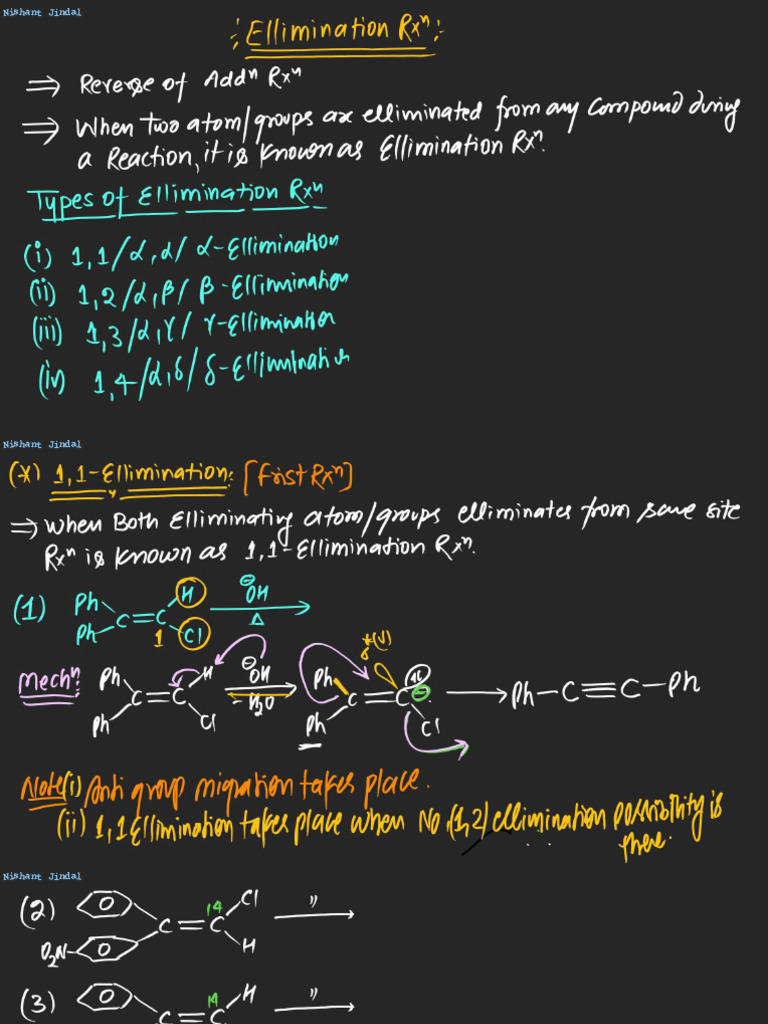 Nishant Jindal
Ellimination Rxⁿ
⇒ Reverse of Addⁿ Rxⁿ
⇒ When two atom/groups are elliminated from any compound during
a Reaction, it is known as Ellimination Rxⁿ.
Types of Ellimination Rxⁿ
(i) 1,1/α,α/ α-Ellimination
(ii) 1,2/α,β/ β-Ellimination
(iii) 1,3/α,γ/ γ-Ellimination
(iv) 1,4/α,δ/ δ-Ellimination
Nishant Jindal
(*) 1,1-Ellimination: [Frist Rxⁿ]
⇒ When Both Elliminating atom/groups elliminates from same site
Rxⁿ is known as 1,1-Ellimination Rxⁿ.
(1) Ph Ph C=C H Cl 1 ⊖OH Δ
Mechⁿ: Ph Ph C=C H Cl ⊖OH -H₂O Ph Ph C=C ⊖ Cl Ph-C≡C-Ph
Note (i) Anti group migration takes place.
(ii) 1,1 Ellimination takes place when No (1,2) ellimination possibility is
there.
Nishant Jindal
(2) O₂N C=C 14 Cl H "
(3) C=C 14 H "